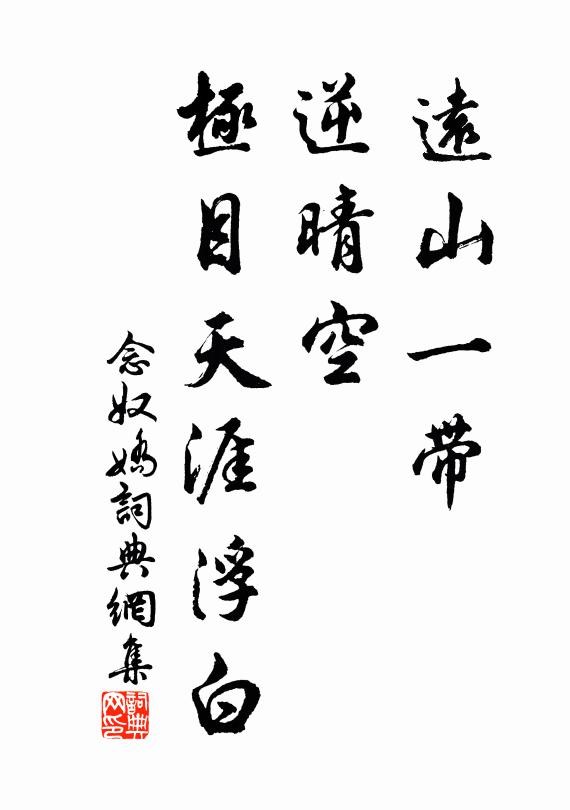 遠山一帶
逆晴空
極目天涯浮白
念奴嬌詞典網集
詞典網印